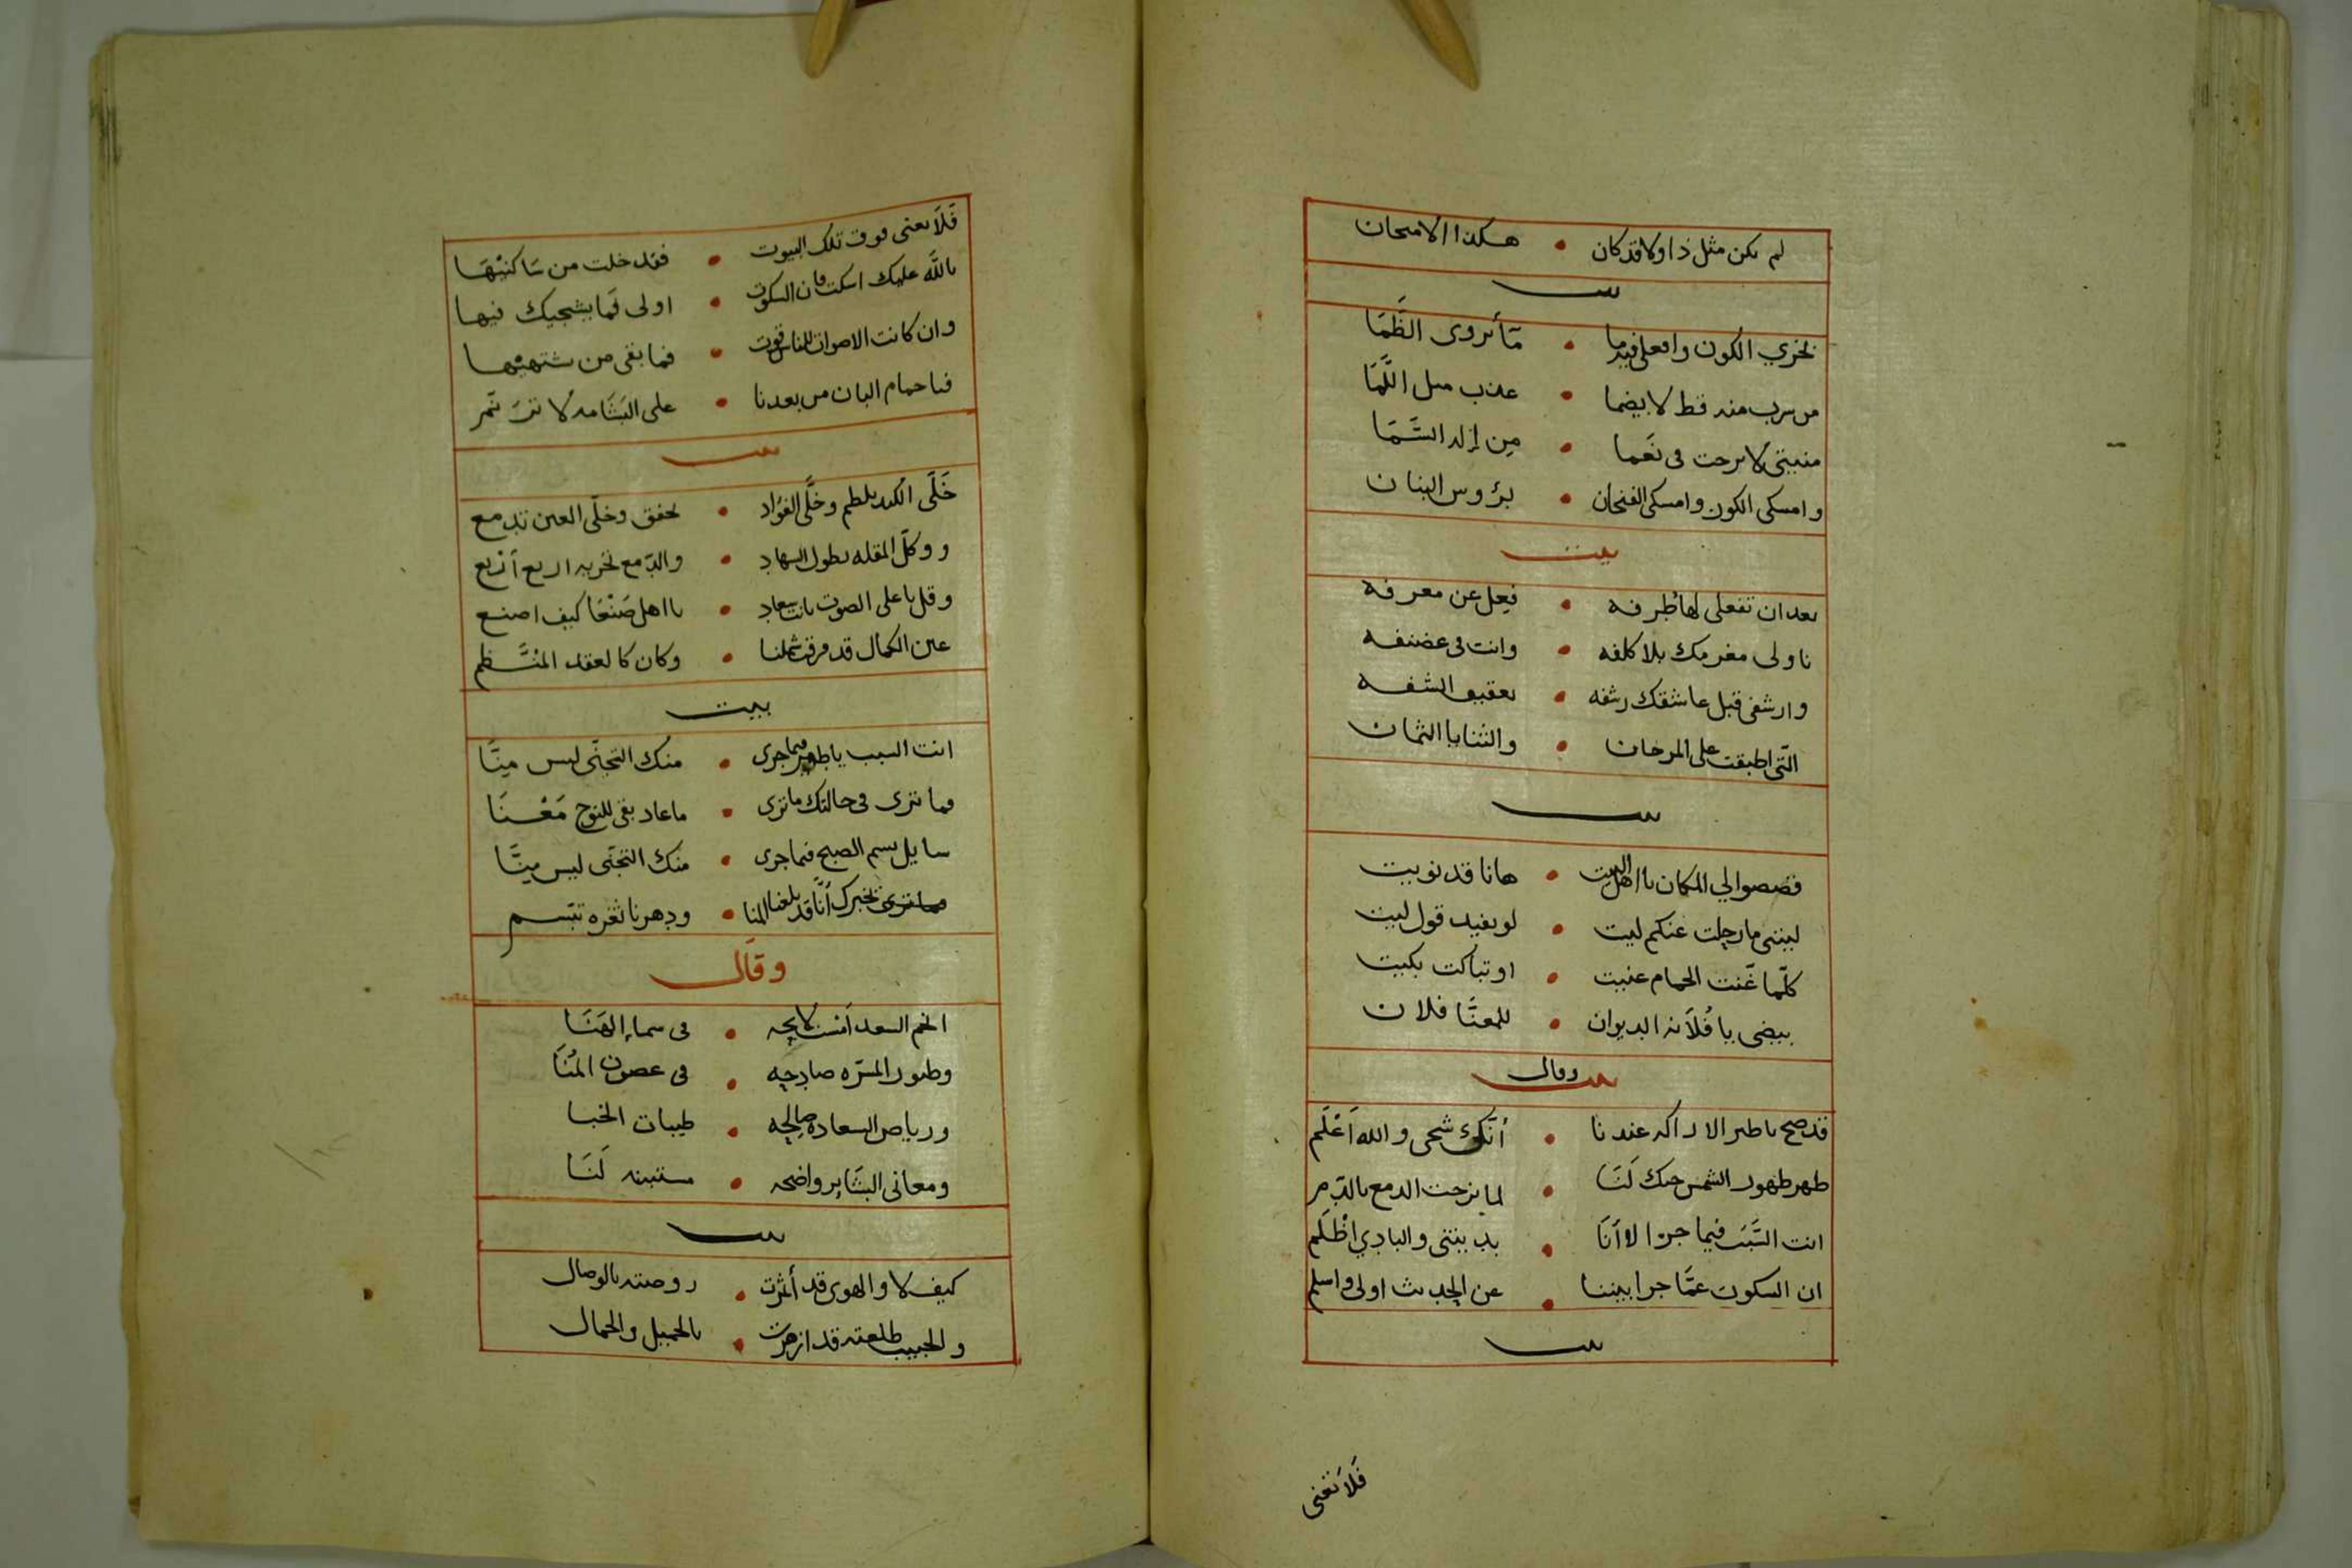 لم يكن مثل ذا ولا قد كان • هكذا الامتحان
بيت
نخزي الكون وافعلي فيه ما • ما يروى الظَّمَا
من سرب منه قط لا يضما • عذب مثل اللَّمَا
منيتي لا برحت في نعَما • مِن إله السَّمَا
وامسكى الكون وامسكى الفنجان • برؤوس البنان
بيت
بعد ان تفعلى لها طُرفه • فِعل عن معرفه
ناولى مغرمك بلا كلفه • وانت فى
وارشفى قبل عاشقك رشفه • بعقيق الشفه
الّتى اطبقت على المرجان • والثنايا الثمان
بيت
فصصوا لي المكان يا اهل البيت • هانا قد نويت
ليتنى ما رحلت عنكم ليت • لو يفيد قول ليت
كلّما غّنت الحمام غنيت • او تباكت بكيت
بيضى يا فُلاَنه الديوان • للمعنَّا فلان
وقال
بيت
قد صح يا طير الاراكه عندنا • أنّك شجى والله اَعْلَم
ظهر ظهور الشمس حبك لَنَا • لما مزجت الدمع بالدّم
انت السَّبَب فيما جرا لا أنَا • بديتنى والبادي اظْلَم
ان السكوت عمَّا جرا بيننا • عن الحديث اولى واسلم
بيت
فَلاَ تغنى
فَلاَ تغنى فوق تلك البيوت • فقد خلت من سَاكنيْهَا
بالله عليك اسكت فان السكوت • اولى فَما يشجيك فيها
وان كانت الاصوات للناس قوت • فما بقى من يشتهيْها
فيا حمام البان من بعدنا • على البَشَامه لا ترَ نّمر
بيت
خَلّى الكبد يلطم وخلَّى الفؤاد • يخفق وخلّى العين تدمع
ووكلّ المقله بطول السهاد • والدّمع تخريه اربع اَربع
وقل باعلى الصوت بانت سعاد • يا اهل صَنْعَا كيف اصنع
عين الكمال قد فرقت شملنا • وكان كالعقد المنْتَّظم
بيت
انت السبب يا طير فيما جرى • منك التجنّى ليس مِنَّا
فما ترى فى حالتك ما ترى • ما عاد بقى للنوح مَعْنَا
سايل نسيم الصبح فيما جرى • منك التجنّى ليس مِنَّا
يخبرك أنَّا قد بلغنا المنا • ودهرنا ثغره تبّسم
وقال
انجم السعد اَمْست لايحه • فى سماءِ الهَنَا
وطيور المسّره صادحه • فى غصون المُنَا
ورياض السعاده صالحه • طيبات الجنا
ومعانى البشَاير واضحه • مستبينه لَنَا
بيت
كيف لا والهوى قد أثمرت • روضته بالوصال
والحبيب طلعته قد ازهرت • بالجميل والجمال